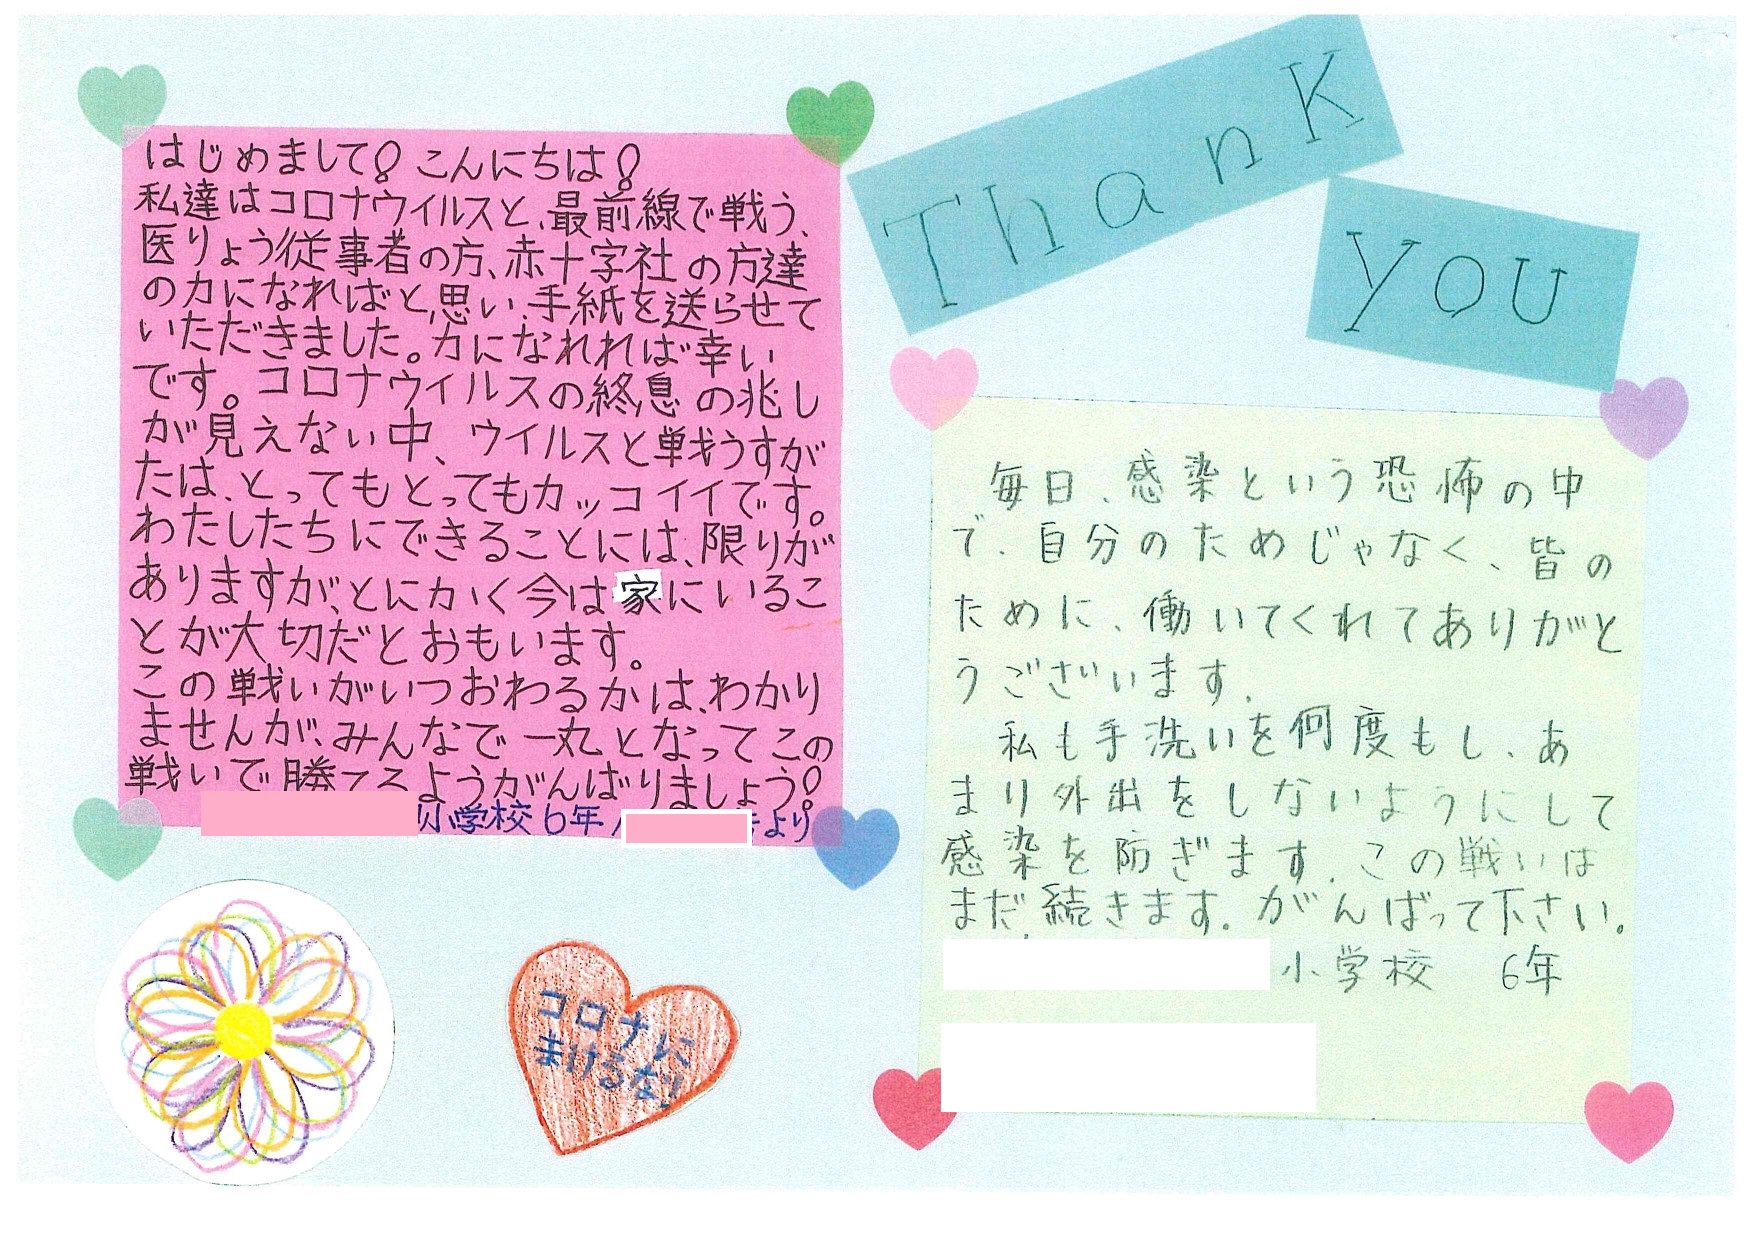 はじめまして!こんにちは!
私達はコロナウイルスと、最前線で戦う、
医りょう従事者の方、赤十字社の方達
の力になればと、思い、手紙を送らせて
いただきました。力になれれば幸い
です。コロナウイルスの終息の兆し
が見えない中、ウイルスと戦うすが
たは、とってもとってもカッコイイです。
わたしたちにできることには、限りが
ありますが、とにかく今は家にいるこ
とが大切だとおもいます。
この戦いがいつおわるかは、わかり
ませんが、みんなで一丸となってこの
戦いで勝てるようがんばりましょう!
小学校6年
より
Thank
you
毎日、感染という恐怖の中
で、自分のためじゃなく、皆の
ために、働いてくれてありがと
うございます。
私も手洗いを何度もし、あ
まり外出をしないようにして
感染を防ぎます。この戦いは
まだ、続きます。がんばって下さい。
小学校 6年
コロナに
まけるな!